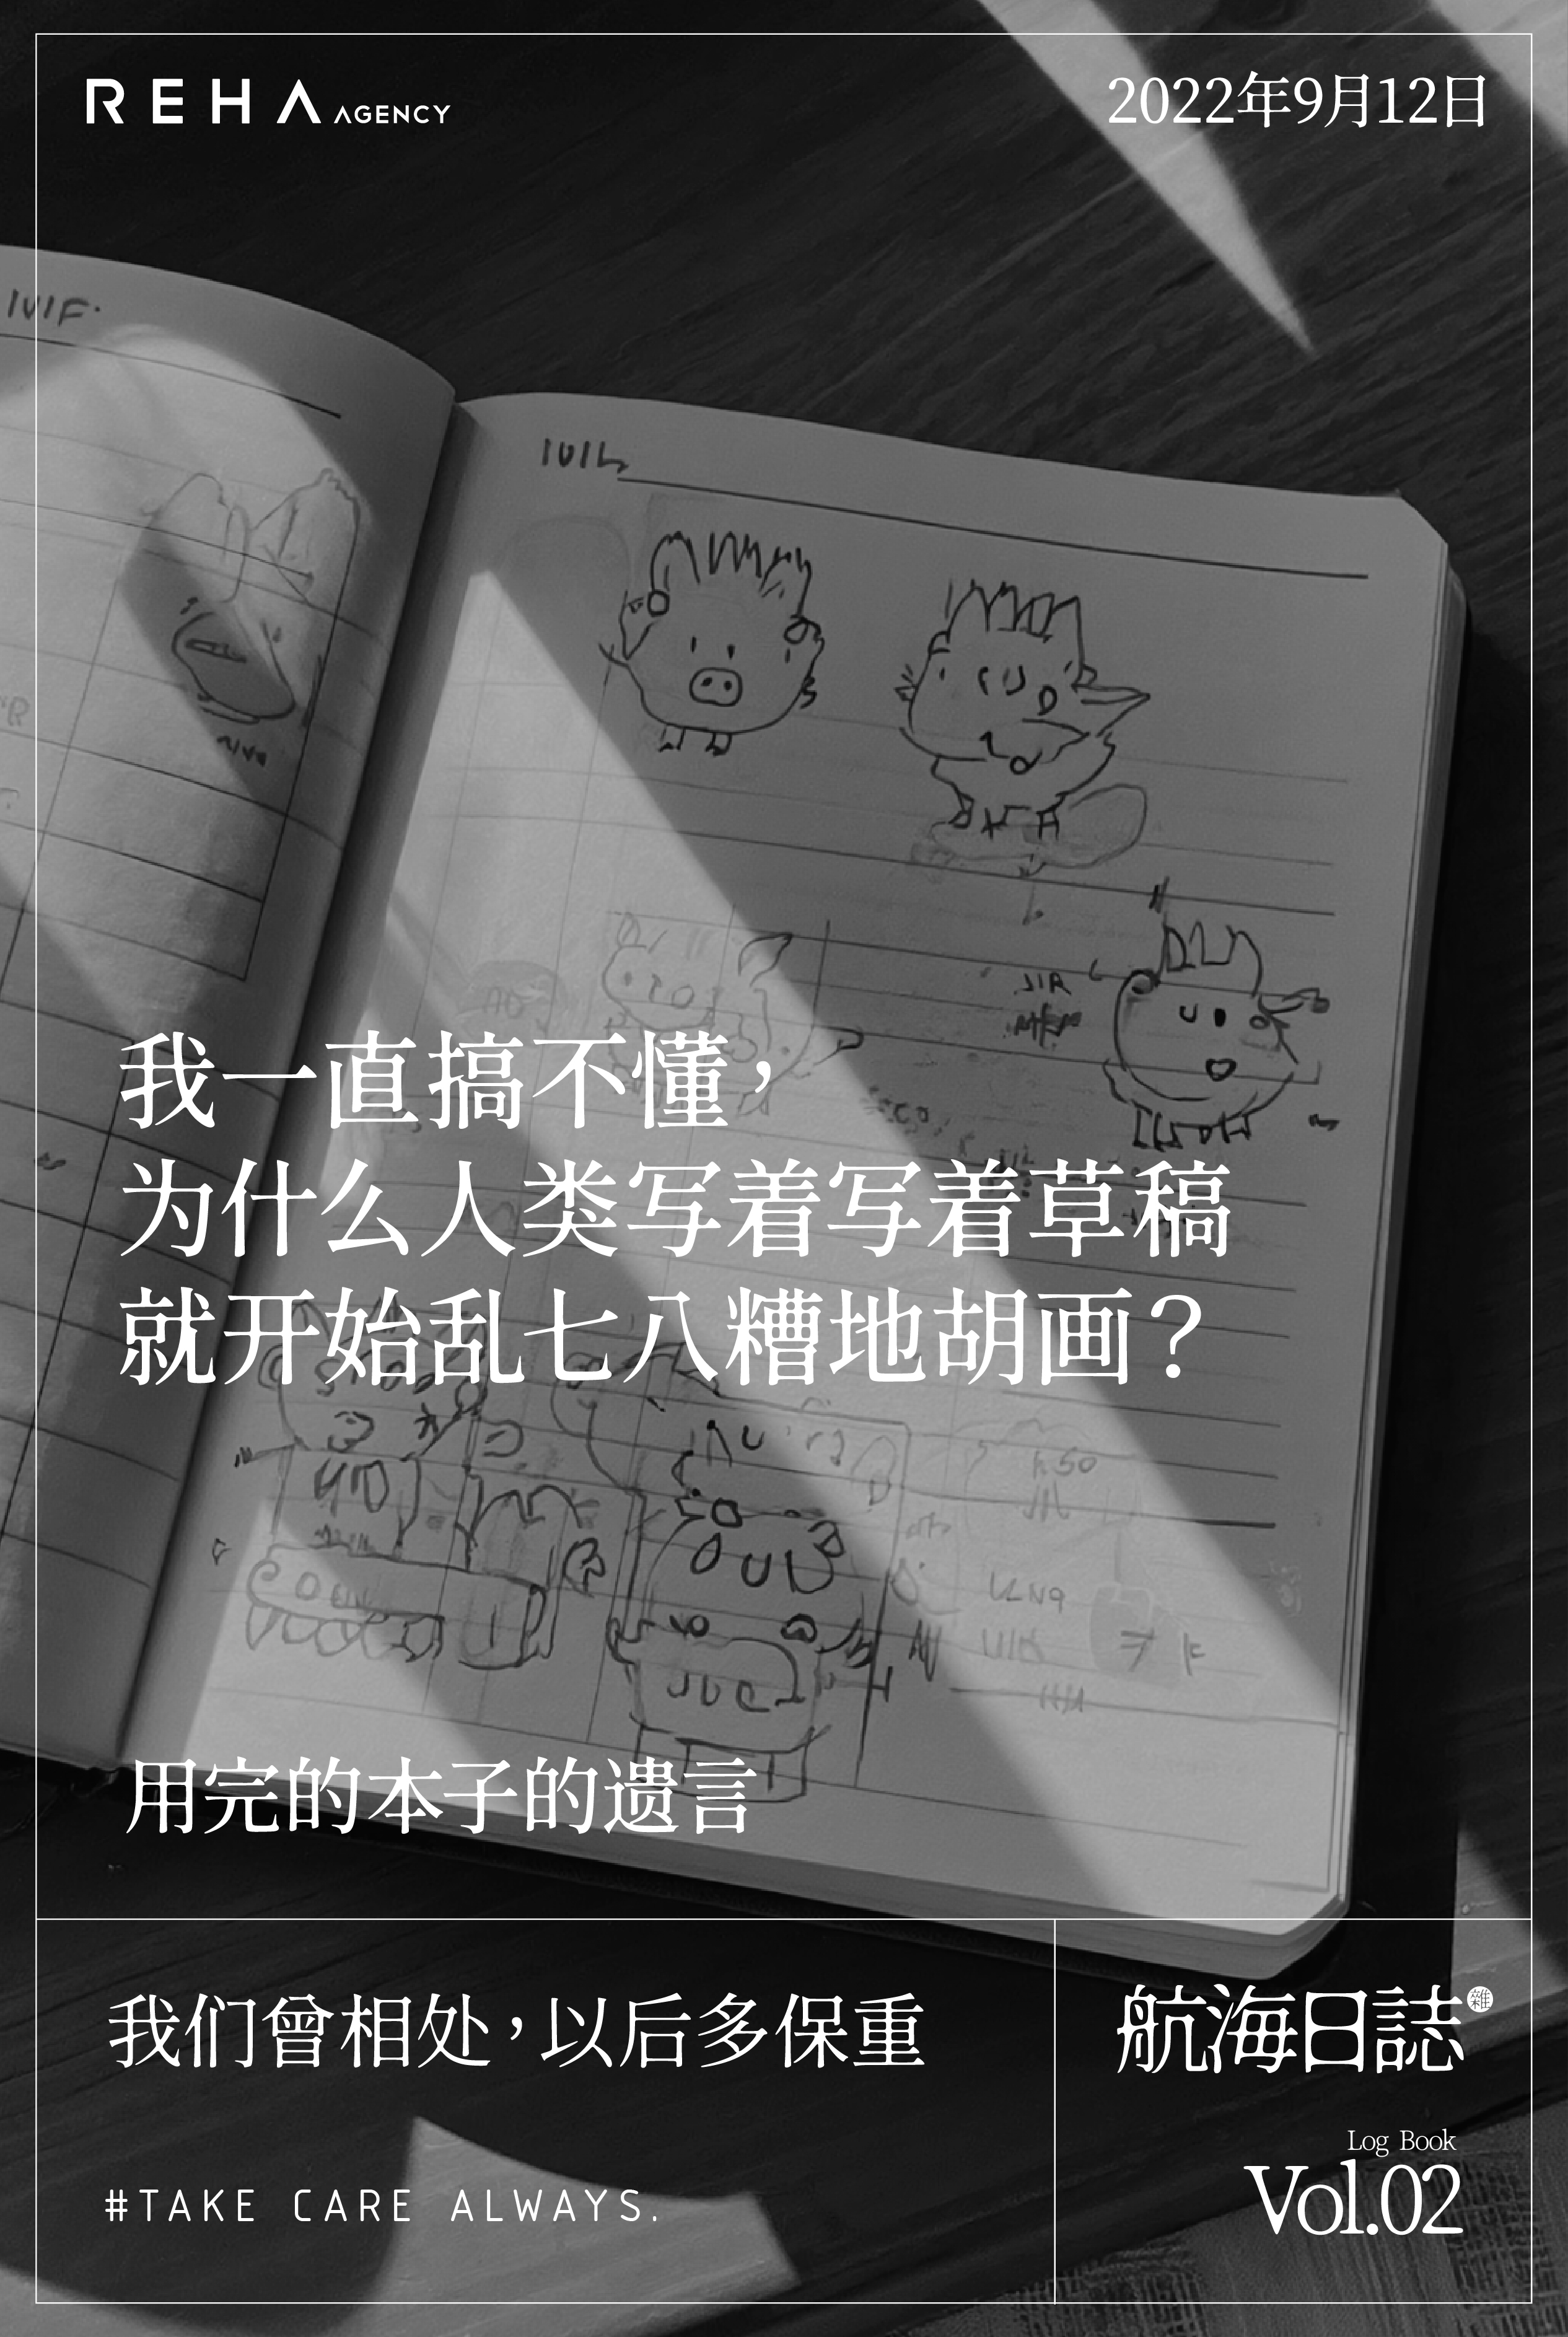 REHA AGENCY
2022年9月12日
我一直搞不懂，
为什么人类写着写着草稿
就开始乱七八糟地胡画？
用完的本子的遗言
我们曾相处，以后多保重
#TAKE CARE ALWAYS.
航海日誌
雜
Log Book
Vol.02